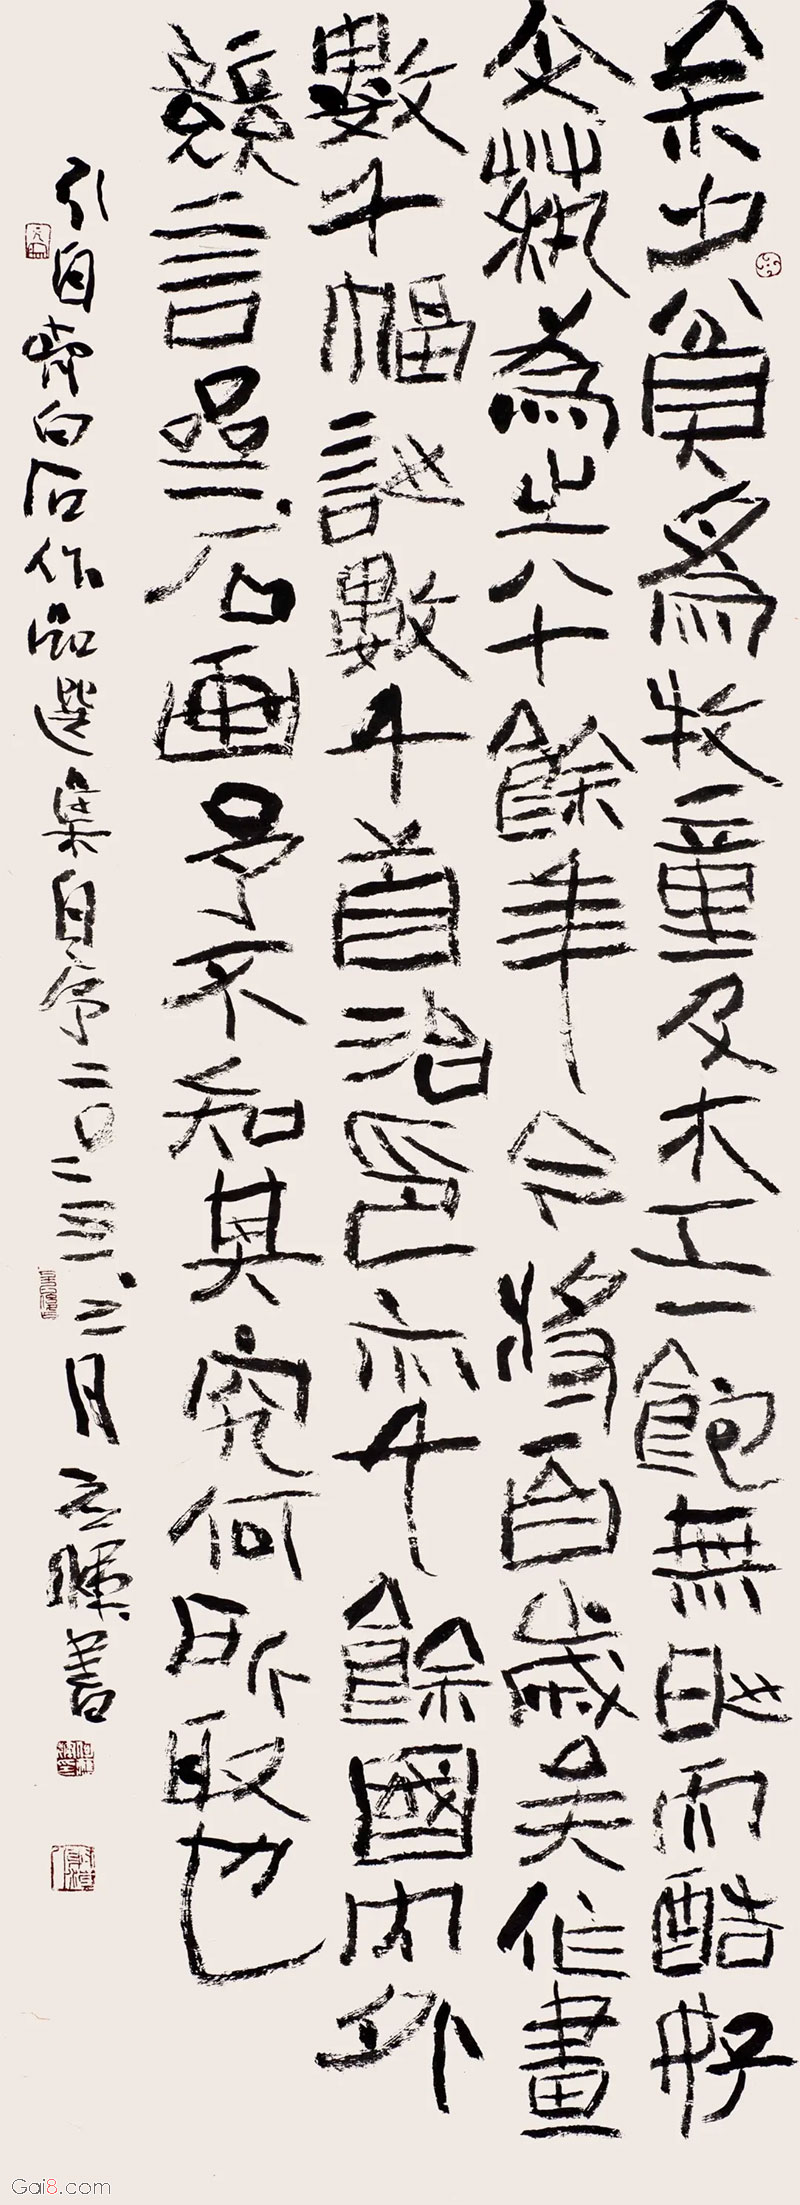 余少貧爲牧童及木工一飽無時而酷好
文藝為之八十餘年今將百歲矣作畫
數千幅詩數千首治印亦千餘國內外
競言齊石画予不知其究何所取也
引自齊白石作品選集自序二〇二三.二月元暉書
Gai8.com